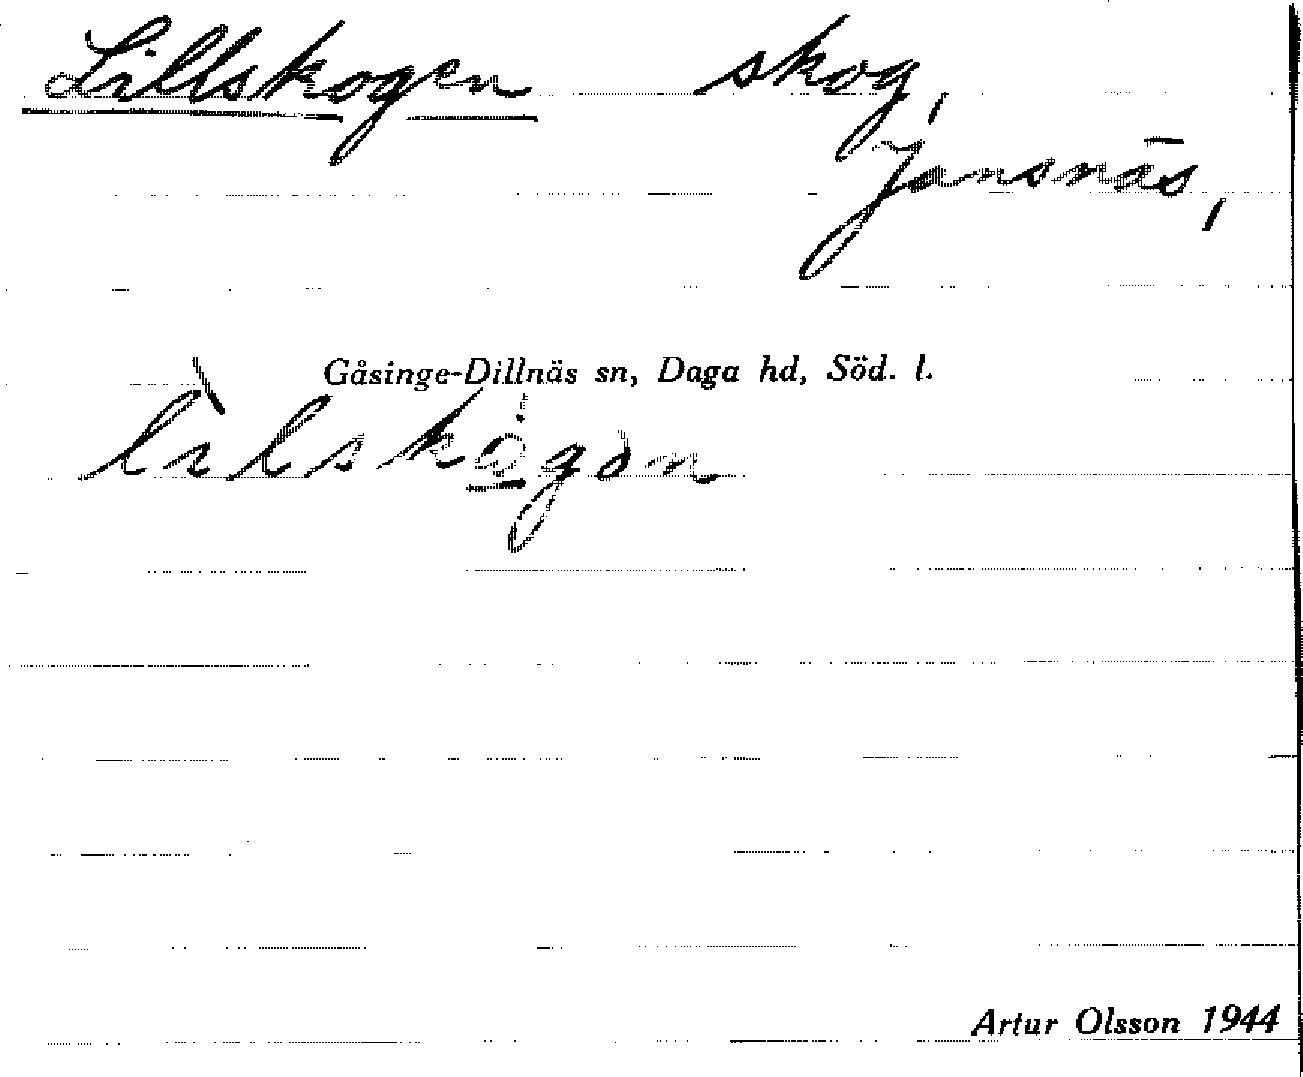 Lillskogen skog,
Jansnäs,
Gåsinge-Dillnäs sn, Daga hd, Söd. l.
lìlskògən
Artur Olsson 1944